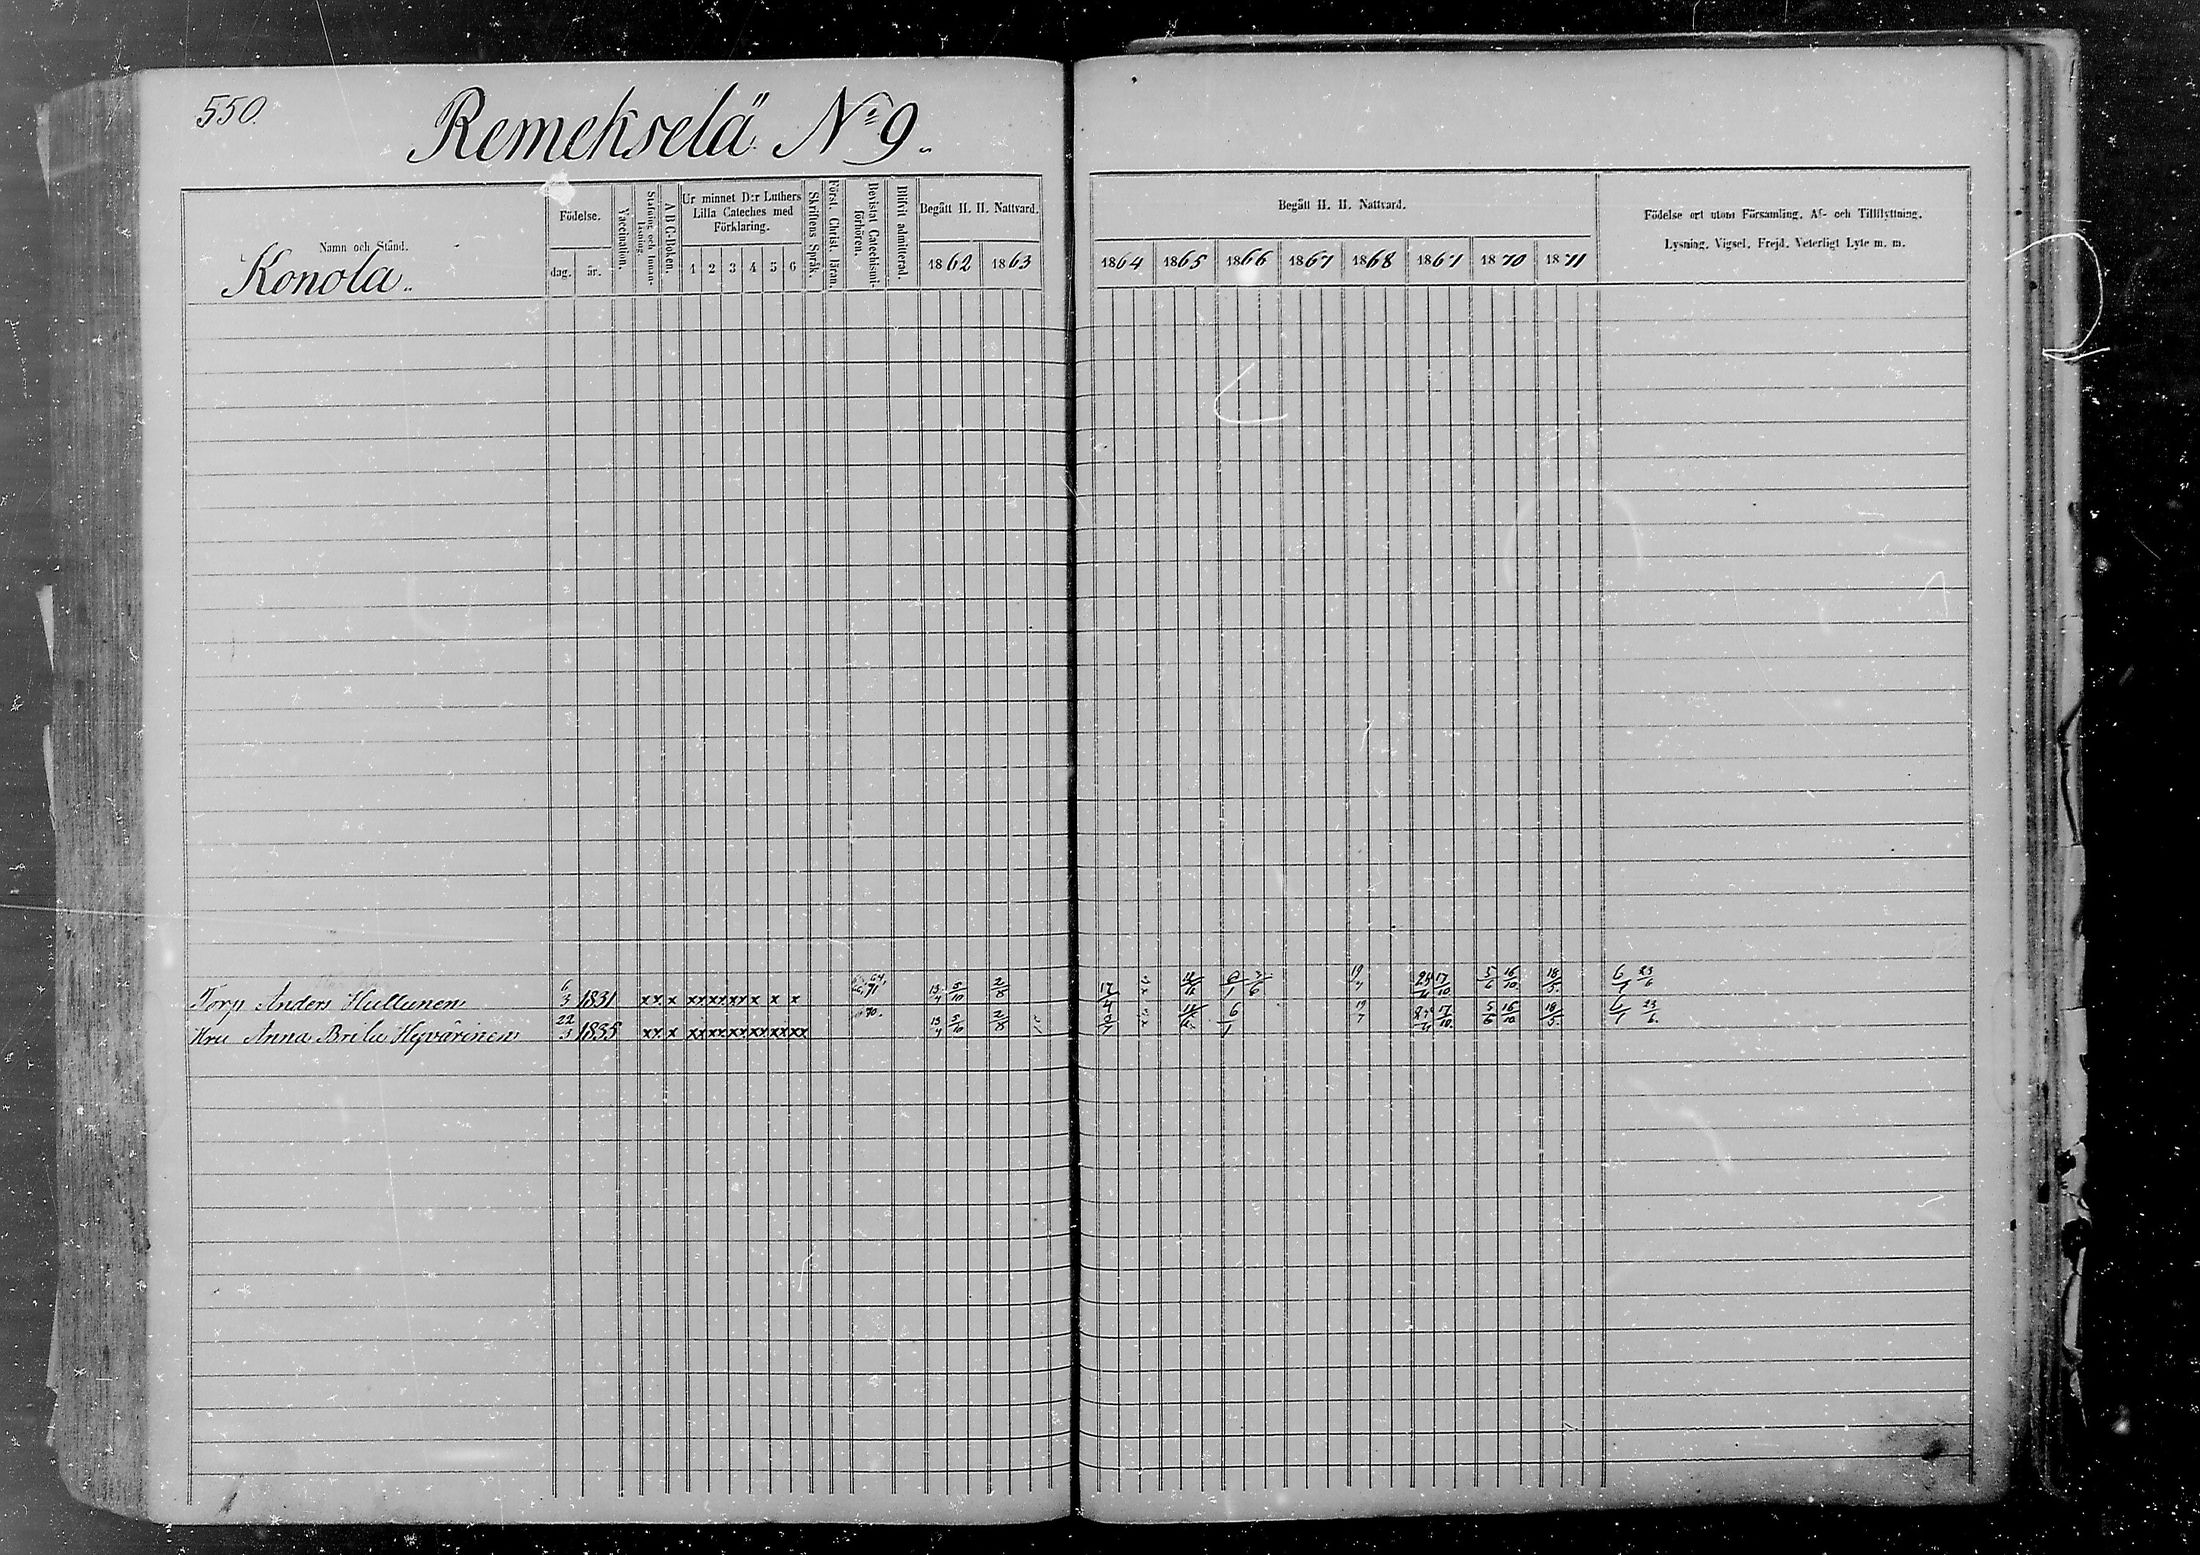 550.
Remekselä No 9.
Namn och Stånd.
Konola
Födelse.
dag. år.
Vaccination.
Stafning och Innan-läsning.
A B C-Boken.
Ur minnet D:r Luthers
Lilla Cateches med
Förklaring.
1 2 3 4 5 6
Skriftens Språk.
Först. Christ. läran.
Bevistat Catechismi-förhören.
Blifvit admitterad.
Begått H. H. Nattvard.
1862 1863
Begått H. H. Nattvard.
1864 1865 1866 1867 1868 1867 1870 1871
Födelse ort utom Församling. Af- och Tillflyttning.
Lysning. Vigsel. Frejd. Veterligt Lyte m. m.
Torp Anders Hullunen 6/3 1831 xx x xx xx xx x x x 71 13/4 5/10 2/8 19/7 17/10 5/6 16/10 18/5 6/7 23/6
Hru Anna Brita Hyvärinen 22/3 1835 xx x xx xx xx xx xx xx 70. 13/4 5/10 2/8 6/1 19/7 17/10 5/6 16/10 18/5 6/7 23/6